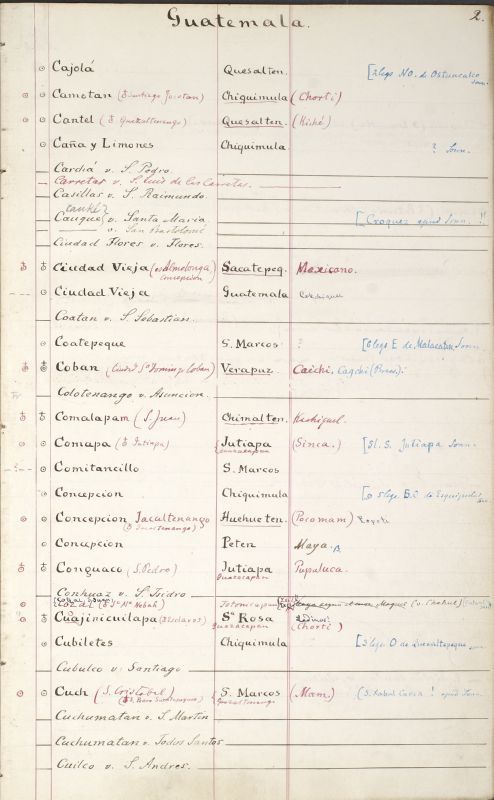 Guatemala. 2.
Cajolá Quesalten. [2 legs NO. de Ostuncalco
Camotan (S Santiago Jocotan) Chiquimula (Chorti)
Cantel (S Quezaltenango) Quesalten. (Kiché)
Caña y Limones Chiquimula ? Sonn.
Cardiá v. S. Pedro.
Carretas v. S. Luis de las Carretas.
Casillas v. S. Raimundo
Cauque v. Santa Maria [Croquez apud Sonn. !!
v. San Bartolomé
Ciudad Flores v. Flores.
Ciudad Vieja (es Almolonga) Sacatepeq. Mexicano.
concepcion
Ciudad Vieja Guatemala
Coatan v. S. Sebastian
Coatepeque S. Marcos ? [6 legs E de Malacatan Sonn.
Coban (Ciudad Sto Domingo Coban) Verapaz Caichi, Cagchi (Brass.)
Colotenango v. Asuncion.
Comalapam (S. Juan) Chimalten. Kachiquel.
Comapa (S Jutiapa) Jutiapa (Sinca.) [5l. S. Jutiapa Sonn.
Guazacapan
Comitancillo S. Marcos
Concepcion Chiquimula
Concepcion Jacaltenango Huehueten. (Pocomam)
(S Jacaltenango)
Concepcion Peten Maya.
Conguaco (S. Pedro) Jutiapa Pupuluca.
Guazacapan
Conhuaz v. S. Isidro
Totonicapan
Cuajinicuilapa (Esclavos) Sa Rosa Ladinos!
Guazacapan (Chorti)
Cubiletes Chiquimula [3 legs O de Quezaltepeque
Cubulco v. Santiago
Cuch (S. Cristobal) S. Marcos (Mam)
Quezaltenango
Cuchumatan v. S. Martin
Cuchumatan v. Todos Santos
Cuilco v. S. Andres.